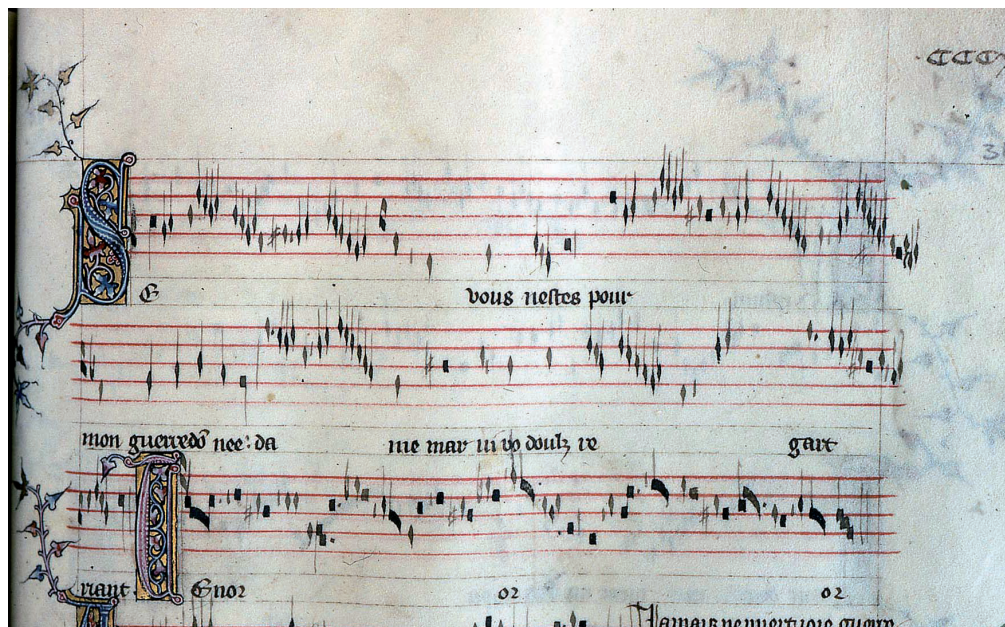 CCC
S E vous nestes pour
mon guerredõ nee: da me mar vi vo doulz re gart
riant T Enor or or
Jamais ne